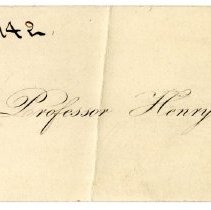 142
Professor Henry